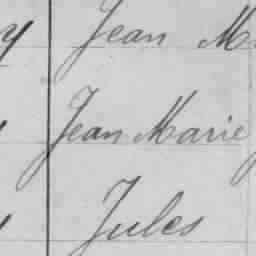 y Jean M
Jean Marie
Jules